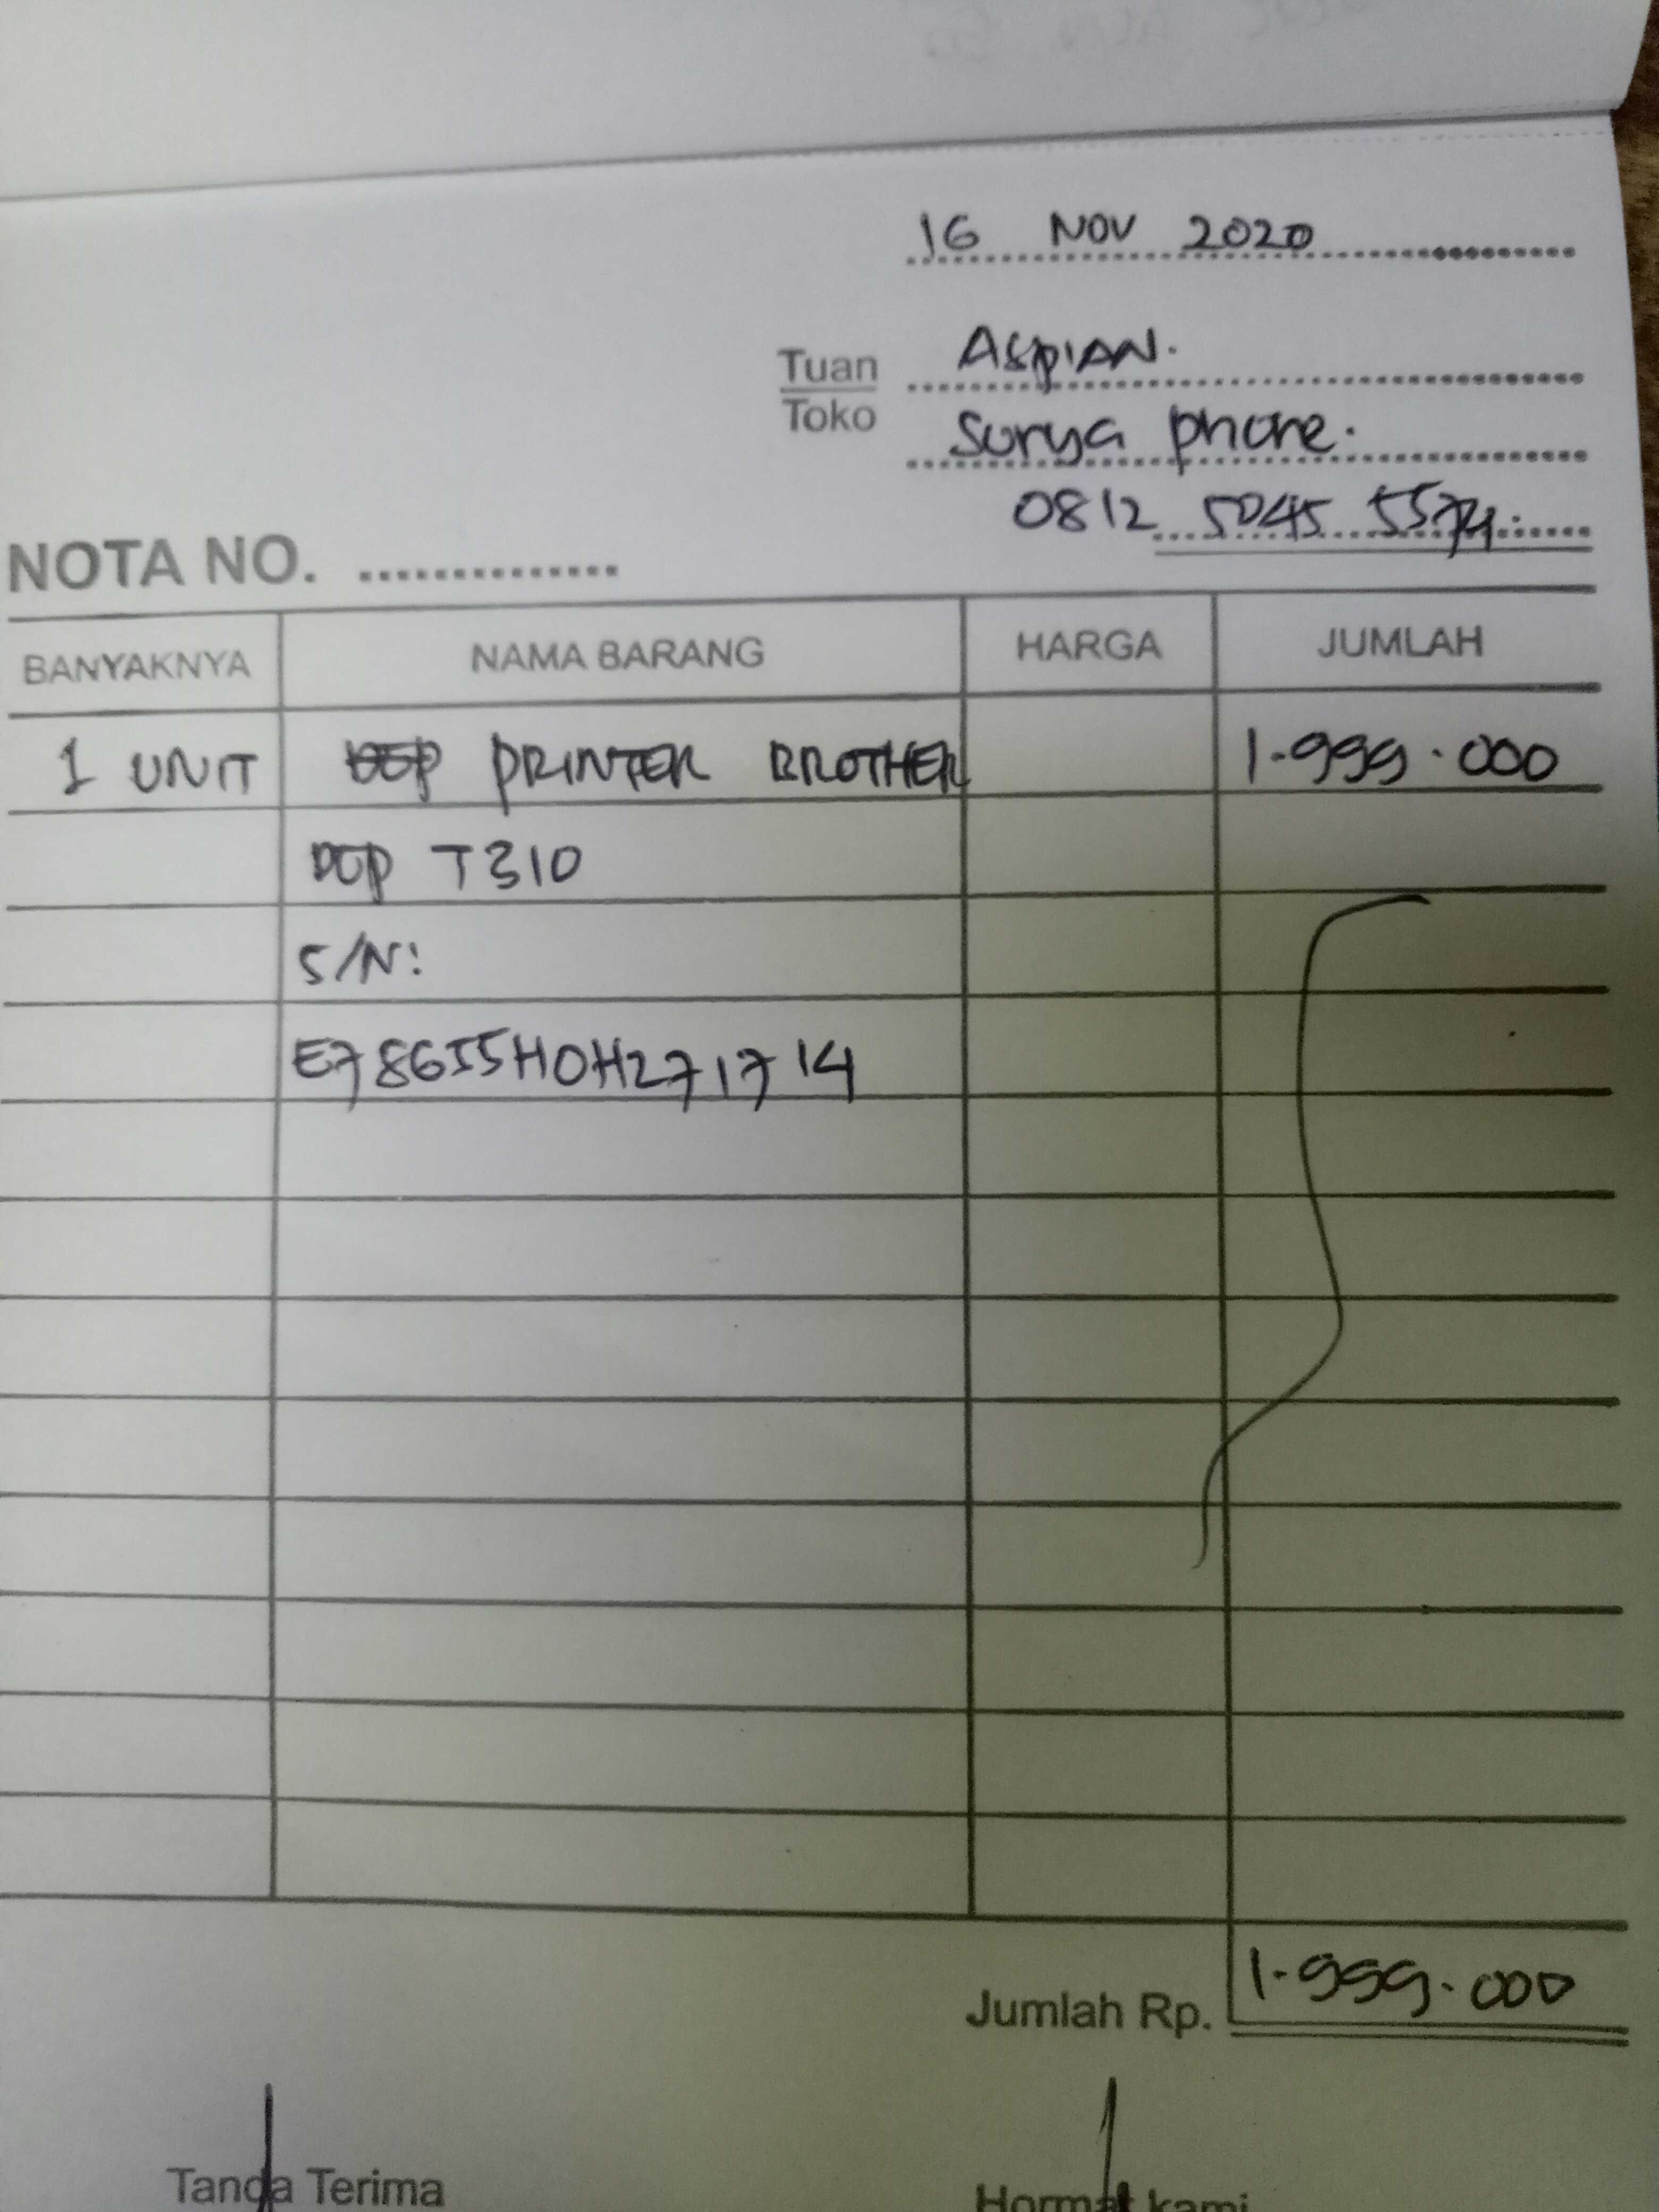 16 NOV 2020
Tuan ASPIAN.
Toko Surya phone.
0812 5045 5574.
NOTA NO. ..............
BANYAKNYA NAMA BARANG HARGA JUMLAH
1 UNIT PRINTER BROTHER 1.999.000
DCP T310
S/N:
E78655H0H271714
Jumlah Rp. 1.999.000
Tanda Terima Hormat kami